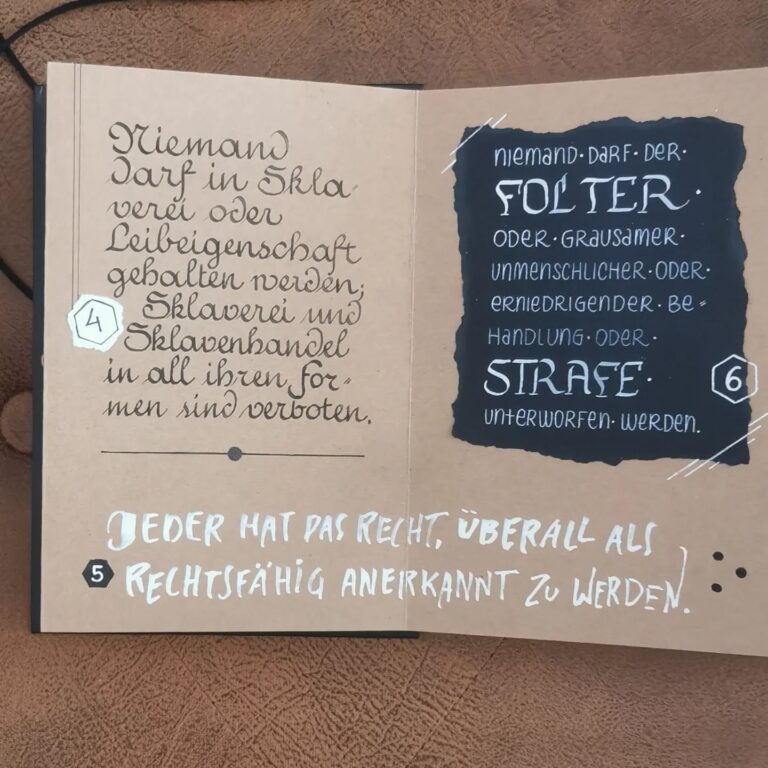 Niemand
darf in Skla-
verei oder
Leibeigenschaft
gehalten werden;
4
Sklaverei und
Sklavenhandel
in all ihren For-
men sind verboten.
niemand · darf · der ·
FOLTER ·
oder · grausamer ·
unmenschlicher · oder ·
erniedrigender · be-
handlung · oder ·
STRAFE ·
6
unterworfen · werden.
JEDER HAT DAS RECHT, ÜBERALL ALS
5
RECHTSFÄHIG ANERKANNT ZU WERDEN.